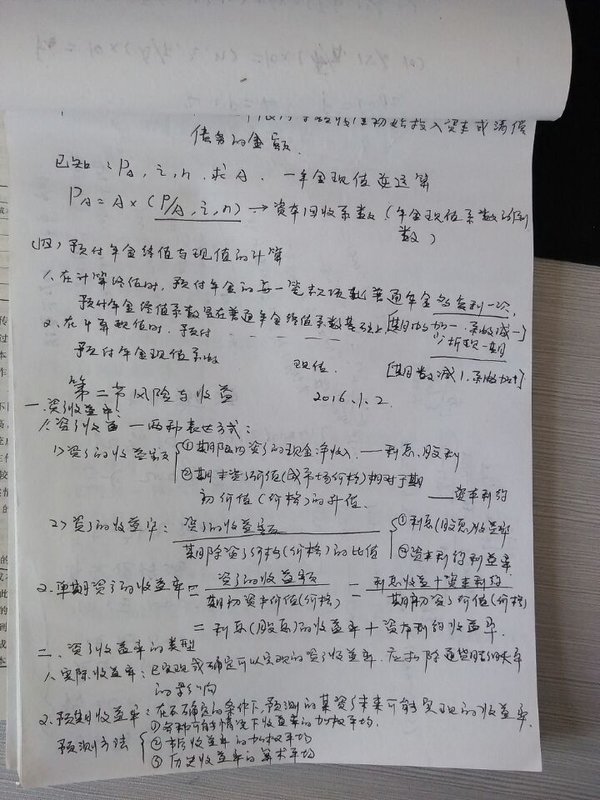 初始投入资本或清偿
债务的金额
已知:PA,i,n,求A. —年金现值逆运算
PA=A×(P/A,i,n)→资本回收系数(年金现值系数的倒
数)
(四)预付年金终值与现值的计算
1.在计算终值时,预付年金的每一笔款项比普通年金多复利一次,
预付年金终值系数是在普通年金终值系数基础上[期数加一,系数减一]
2.在计算现值时,预付 少折现一期
预付年金现值系数 现值. [期数减1,系数加1]
第二节风险与收益 2016.1.2
一.资产收益率:
1.资产收益—两种表达方式:
1>资产的收益额 ①期限内资产的现金净收入.——利息、股利
②期末资产价值(或市场价格)相对于期
初价值(价格)的升值. ——资本利得
2>资产的收益率: 资产的收益额 ①利息(股息)收益率
期初资产价值(价格)的比值 ②资本利得收益率
2.单期资产的收益率= 资产的收益额 = 利息收益+资本利得
期初资产价值(价格) 期初资产价值(价格)
=利息(股息)的收益率+资本利得收益率.
二、资产收益率的类型
1.实际收益率:已实现或确定可以实现的资产收益率.应扣除通货膨胀率
的影响
2.预期收益率:在不确定的条件下,预测的某资产未来可能实现的收益率.
预测方法 ①各种可能情况下收益率的加权平均.
② 收益率的加权平均
③历史收益率的算术平均